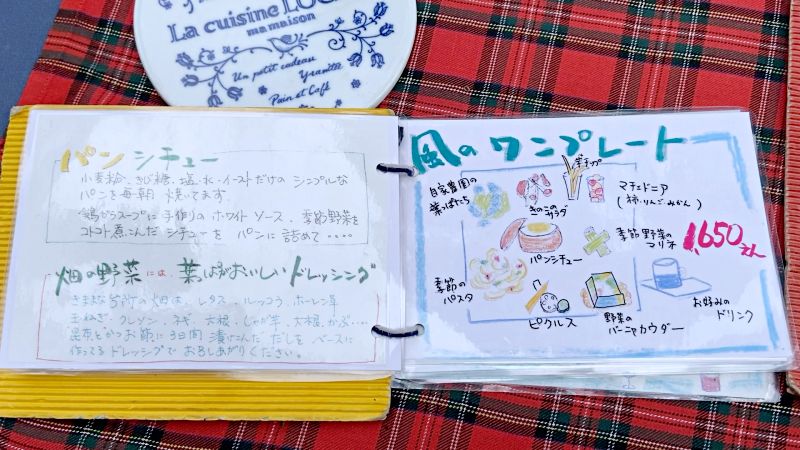 La cuisine
ma maison
Un petit cadeau
Pain et Café
パン シチュー
小麦粉、きび糖、塩、水、イーストだけの シンプルな
パンを毎朝 焼いてます
鶏がらスープに手作りの ホワイト ソース、季節野菜を
コトコト煮こんだ シチューを パンに詰めて‥‥
畑の野菜には、葉っぱがおいしい ドレッシング
畑は、レタス、ルッコラ、ホーレン草
玉ねぎ、クレソン、ネギ、大根、じゃが芋、大根、かぶ‥‥
昆布とかつお節に3日間 漬けこんだ だしを ベースに
作ってる ドレッシングで お召しあがりください。
風のワンプレート
自家農園の
葉っぱたち
きのこの
サラダ
チップ
マチェドニア
(柿、りんご、みかん)
パンシチュー
季節野菜の
マリネ
1,650えん
季節の
パスタ
ピクルス
野菜の
バーニャカウダー
お好みの
ドリンク